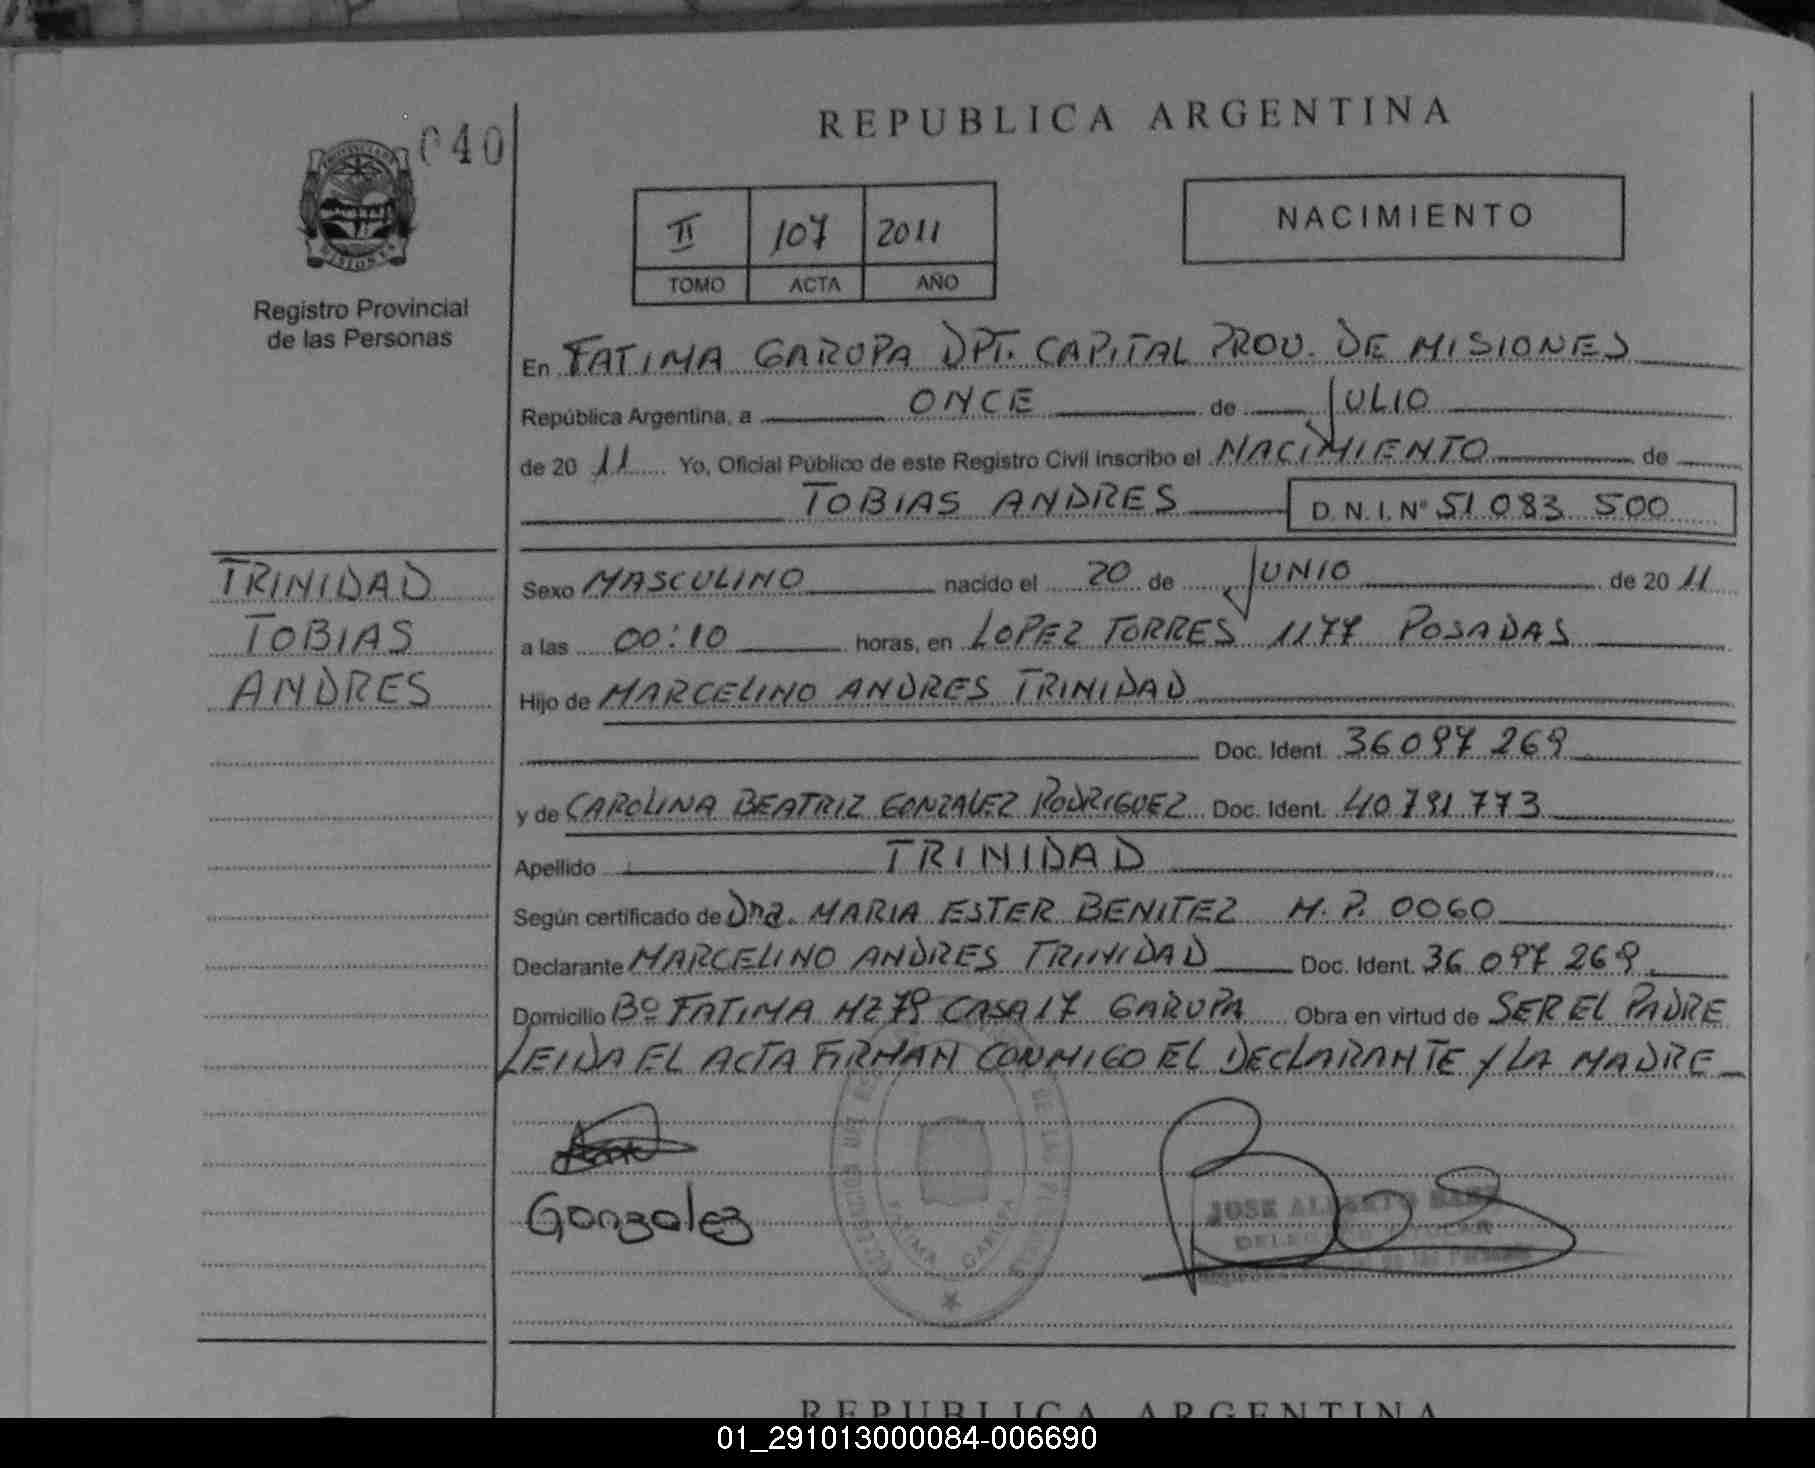 REPUBLICA ARGENTINA
040
NACIMIENTO
II 107 2011
TOMO ACTA AÑO
Registro Provincial
de las Personas
En FATIMA GARUPA DPT. CAPITAL PROV. DE MISIONES
República Argentina, a ONCE de JULIO
de 20 11 Yo, Oficial Público de este Registro Civil inscribo el NACIMIENTO de
TOBIAS ANDRES D.N.I. Nº 51 083 500
TRINIDAD
TOBIAS
ANDRES
Sexo MASCULINO nacido el 20 de JUNIO de 20 11
a las 00:10 horas, en LOPEZ TORRES 1177 POSADAS
Hijo de MARCELINO ANDRES TRINIDAD
Doc. Ident. 36 097 269
y de CAROLINA BEATRIZ GONZALEZ RODRIGUEZ Doc. Ident. 40 791 773
Apellido TRINIDAD
Según certificado de Dra. MARIA ESTER BENITEZ M.P. 0060
Declarante MARCELINO ANDRES TRINIDAD Doc. Ident. 36 097 269
Domicilio Bº FATIMA MZ 79 CASA 17 GARUPA Obra en virtud de SER EL PADRE
LEIDA EL ACTA FIRMAN CONMIGO EL DECLARANTE Y LA MADRE
Gonzalez
FATIMA GARUPA
JOSE ALBERTO
REPUBLICA ARGENTINA
01_291013000084-006690